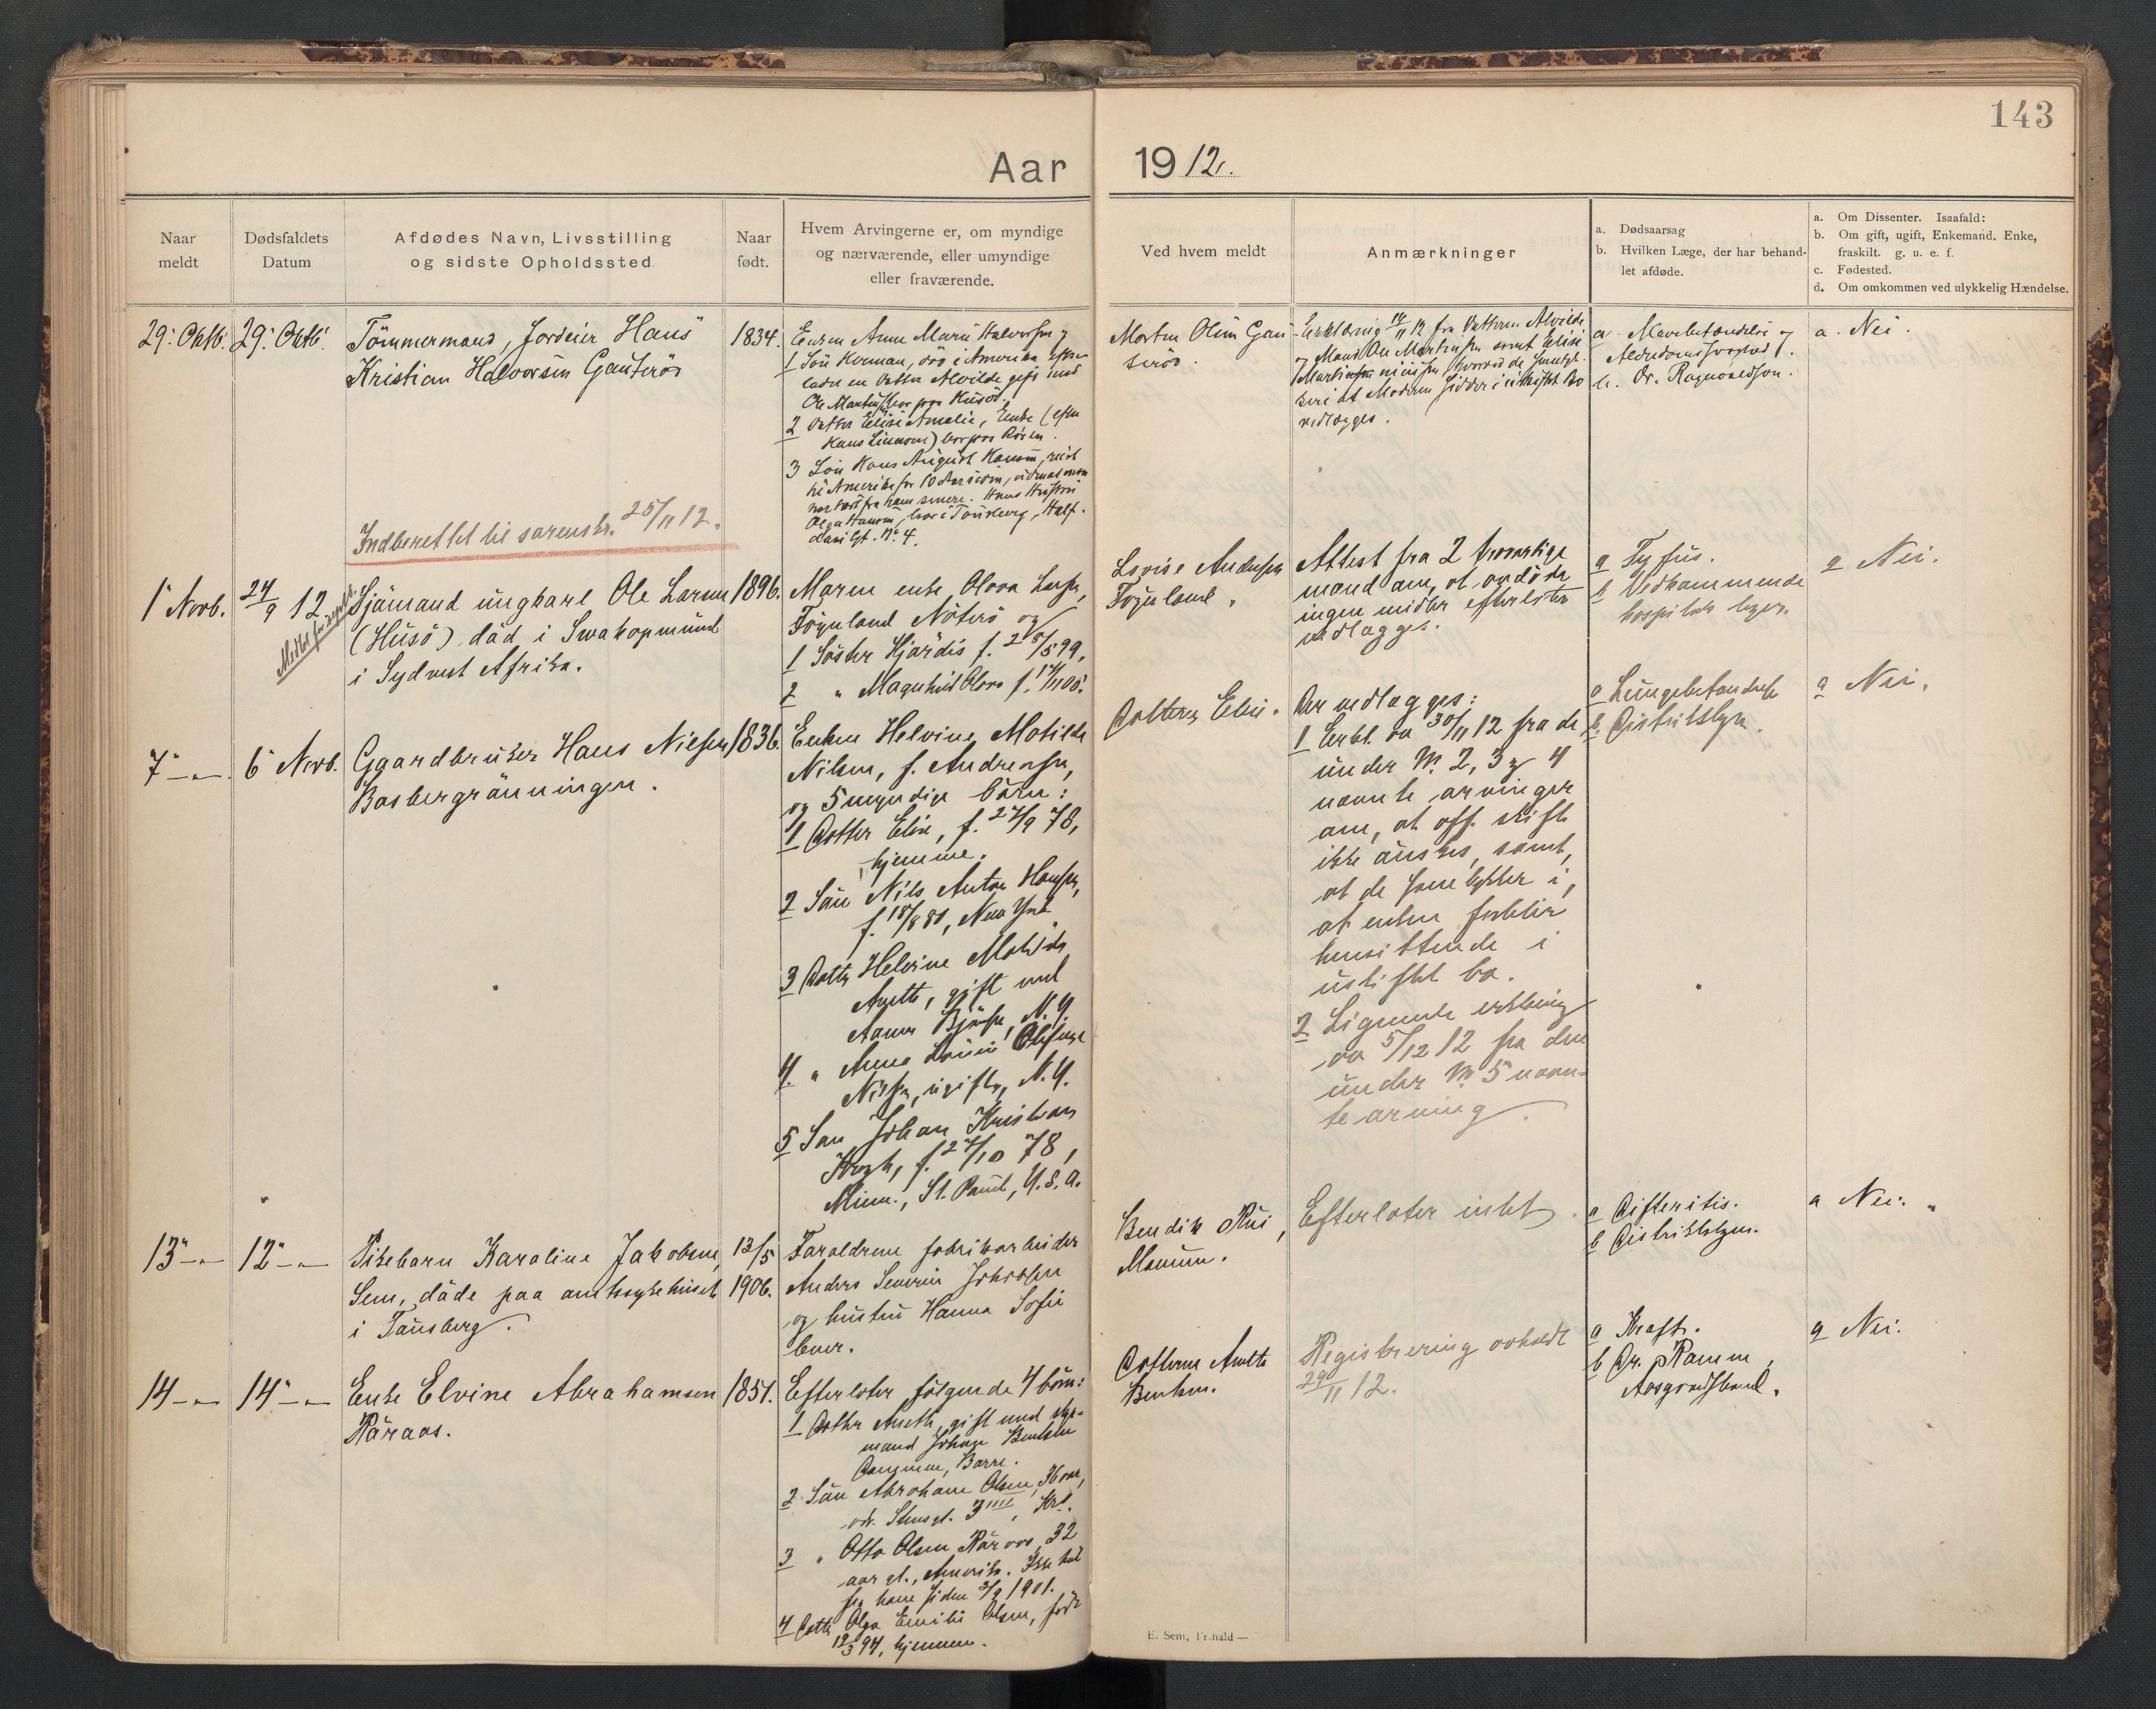 143
Aar 1912.
Naar meldt
Dødsfaldets Datum
Afdødes Navn, Livsstilling og sidste Opholdssted.
Naar født.
Hvem Arvingerne er, om myndige og nærværende, eller umyndige eller fraværende.
Ved hvem meldt
Anmærkninger
a. Dødsaarsag
b. Hvilken Læge, der har behand-
let afdøde.
a. Om Dissenter. Isaafald:
b. Om gift, ugift, Enkemand, Enke,
fraskilt. g. u. e. f.
c. Fødested.
d. Om omkommen ved ulykkelig Hændelse.
29. Oktb. 29. Oktb.
Tömmermand, Jordeier Hans
Kristian Halvorsen Gauterød
1834.
Enken Anne Marie Halvorsen og
1 Sön Herman, död i Amerika efter-
lader en Datter Alvilde gift med
Ole Martinsen
2 Datter Elise Amalie, Enke (efter
Hans
3 Sön Hans August Hansen, reist
til Amerika for 10 Aar siden,
fra ham senere. Hans Hustru
Olga Hansen, bor i Tönsberg, Half-
dans gt. No. 4.
Morten Olsen Gau
teröd.
Erklæring 14/11 12 fra Datteren Alvilde
og Mand Ole Martinsen samt Elise
at Moderen sidder i uskiftet Bo
vedlægges.
a. Mavebetændelse og
Alderdomssvaghed.
b. Dr. Ragnvaldson.
a. Nei.
Indberettet til sorenskr. 25/11 12.
1 Novb.
24/9 12
Sjömand ungkarl Ole Larsen
(Husö), död i Swakopmund
i Sydvest Afrika.
1896.
Moren enke Olava Larsen,
Föynland Nöterö og
1 Söster Hjördis f. 25/5 99,
2 " Magnhild Olava f. 17/11 05.
Lovise Andersen
Föynland.
Attest fra 2 troværdige
mænd om, at avdöde
ingen midler efterlater
vedlægges.
a Tyfus.
b Vedkommende
hospitals læger.
a Nei.
7 - " -
6 Novb.
Gaardbruker Hans Nilsen
Basbergrönningen.
1836.
Enken Helvine Matilde
Nilsen, f. Andreassen,
og 5 myndige börn:
1 Datter Elise, f. 27/9 78,
hjemme.
2 Sön Nils Anton Hansen,
f. 18/8 80, New York
3 Datter Helvine Matilde
Anette, gift med
N.Y.
4 " Anna
Nilsen, ugift, N.Y.
5 Sön Johan Kristian
f. 27/10 78,
Minn., St. Paul, U.S.A.
Datteren Elise.
Der vedlægges:
1 Erkl. av 30/11 12 fra de
under No 2, 3 og 4
nævnte arvinger
om, at off. skifte
ikke önskes, samt,
at de samtykker i,
at enken forblir
hensittende i
uskiftet bo.
2 Lignende erklæring
av 5/12 12 fra den
under No 5 nævn-
te arving.
a Lungebetændelse
b Distriktslægen.
a Nei.
13 - " -
12 - " -
Pikebarn Karoline Jakobsen,
Sem, döde paa amtssykehuset
i Tönsberg.
13/5
1906.
Forældrene fabrikarbeider
Anders Severin Jakobsen
og hustru Hanna Sofie
lever.
Efterlater intet
a Difteritis.
b Distriktslægen.
a Nei.
14 - " -
14 - " -
Enke Elvine Abrahamsen
Råraas.
1851.
Efterlater fölgende 4 börn:
1 Datter Anette, gift med styr-
mand Johan Bentsen
Borre.
2 Sön Abraham Olsen, 36 aar,
3 " Otto Olsen Råraas, 32
aar gl., Amerika. Ikke hört
fra ham siden 2/9 1901.
4 Datter Olga Emilie Olsen, födt
12/3 94, hjemme.
Datteren Anette
Bentsen.
Registrering avholdt
29/11 12.
a Kræft.
b Dr. Ramm,
Aasgaardstrand.
a Nei.
E. Sem, Fr.hald —